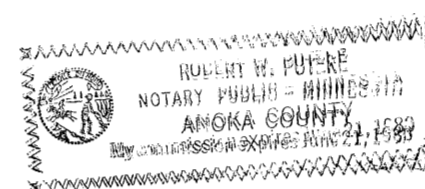 ROBERT W.
NOTARY PUBLIC - MINNESOTA
ANOKA COUNTY
My commission expires 21, 1989